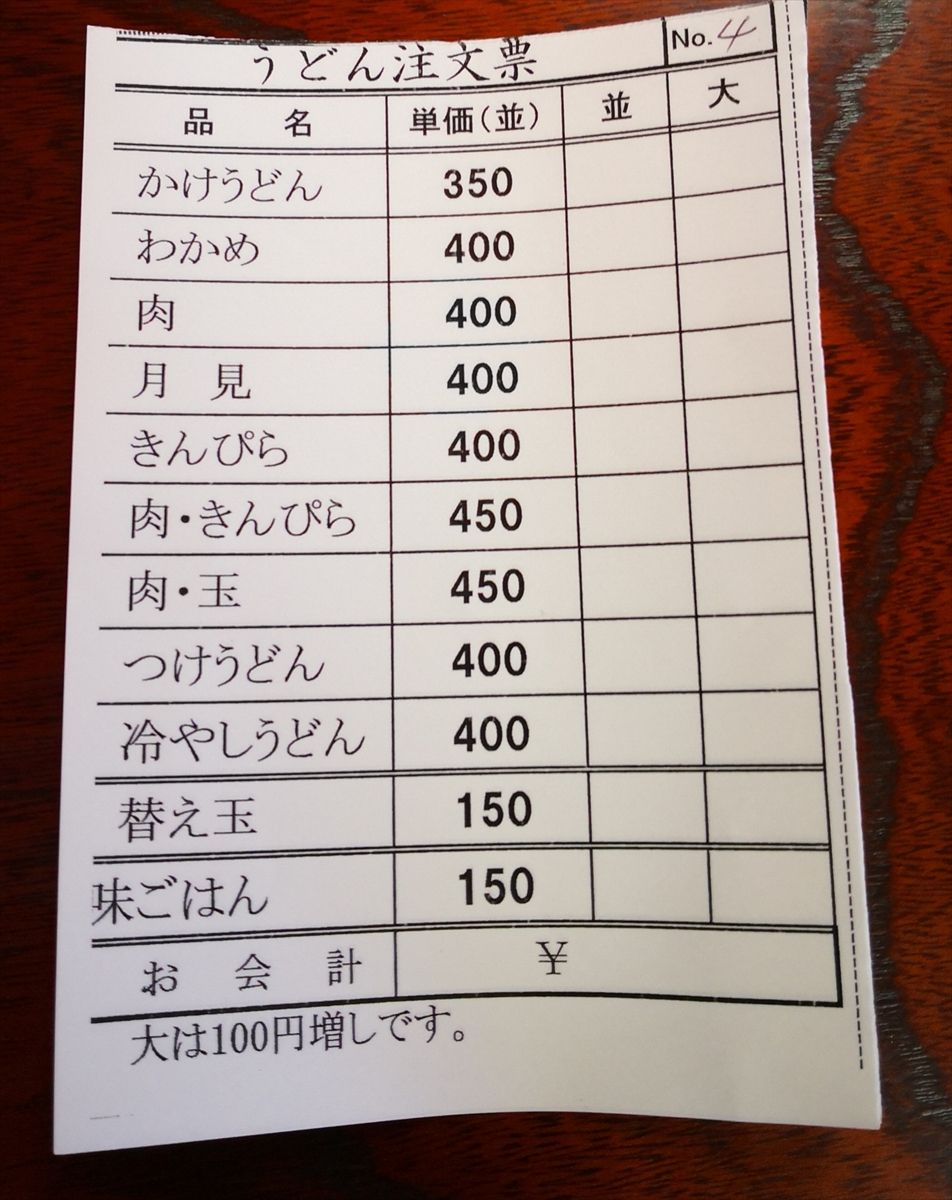 うどん注文票 No. 4
品 名 単価(並) 並 大
かけうどん 350
わかめ 400
肉 400
月 見 400
きんぴら 400
肉・きんぴら 450
肉・玉 450
つけうどん 400
冷やしうどん 400
替え玉 150
味ごはん 150
お 会 計 ¥
大は100円増しです。